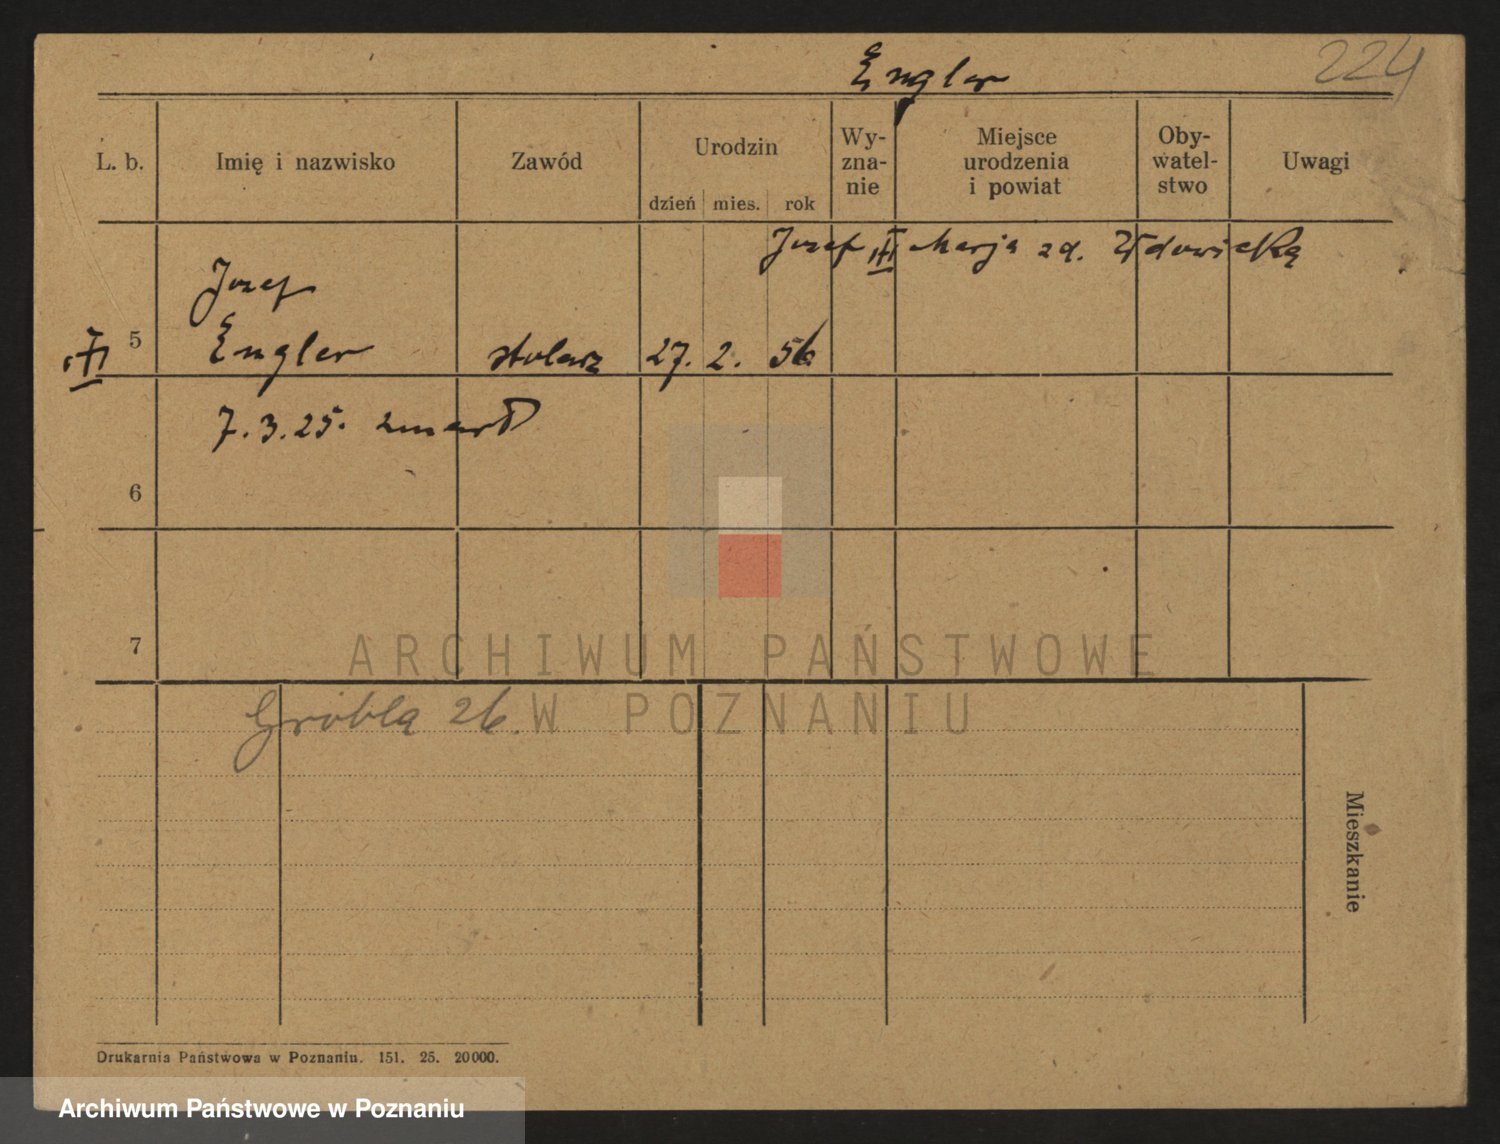 Engler
224
L. b. Imię i nazwisko Zawód Urodzin Wy-zna-nie Miejsce urodzenia i powiat Oby-watel-stwo Uwagi
dzień mies. rok
Jozef III Marja zd. Wdowicką
Jozef
III 5 Engler stolarz 27. 2. 56
7.3.25. zmarł
6
7
ARCHIWUM PAŃSTWOWE
W POZNANIU
Grobla 26.
Mieszkanie
Drukarnia Państwowa w Poznaniu. 151. 25. 20000.
Archiwum Państwowe w Poznaniu